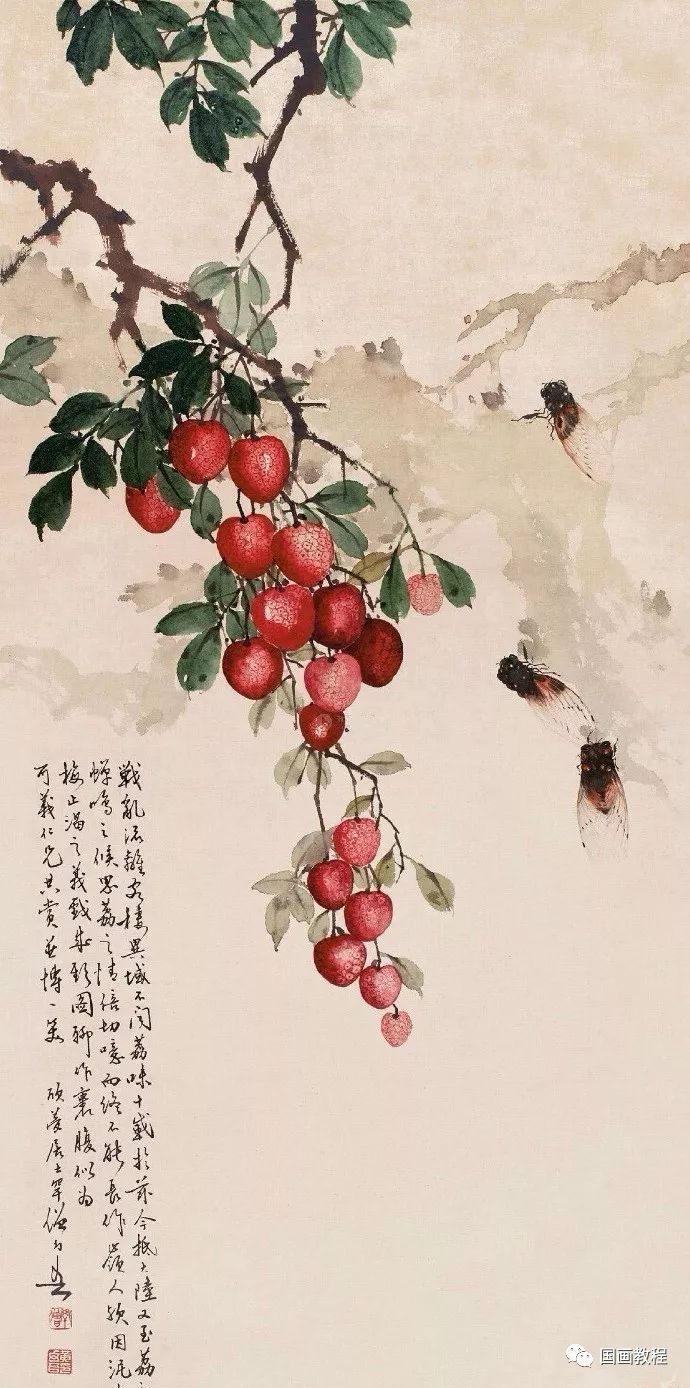 戰亂流離寄棲異域不聞荔味十載於茲今抵大陸又至荔
蟬鳴之候思荔之情倍切噫而終不能長作嶺人頻因
梅止渴之義戲成斯圖聊作裹腹似為
可義仁兄共賞並博一笑
居士
国画教程